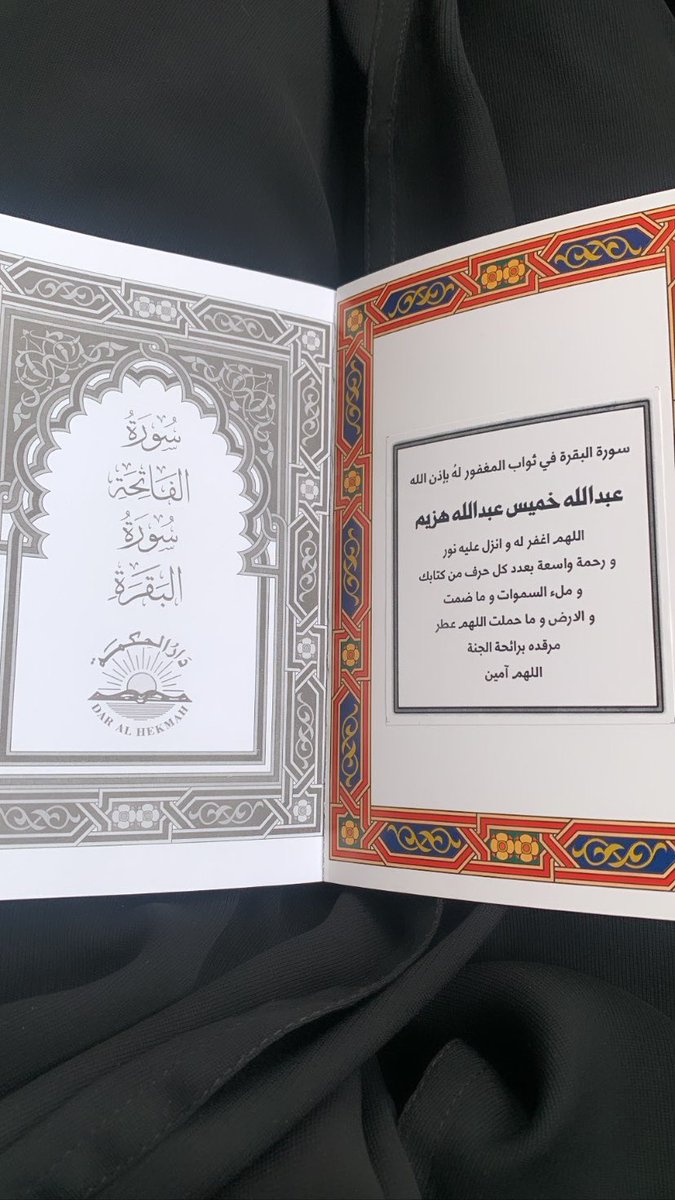 سورة البقرة في ثواب المغفور لهُ بإذن الله
عبدالله خميس عبدالله هزيم
اللهم اغفر له و انزل عليه نور
و رحمة واسعة بعدد كل حرف من كتابك
و ملء السموات و ما ضمت
و الارض و ما حملت اللهم عطر
مرقده برائحة الجنة
اللهم آمين
سُورَةُ
الفَاتِحَة
سُورَةُ
البَقَرَة
دَارُ الحِكْمَة
DAR AL HEKMAH